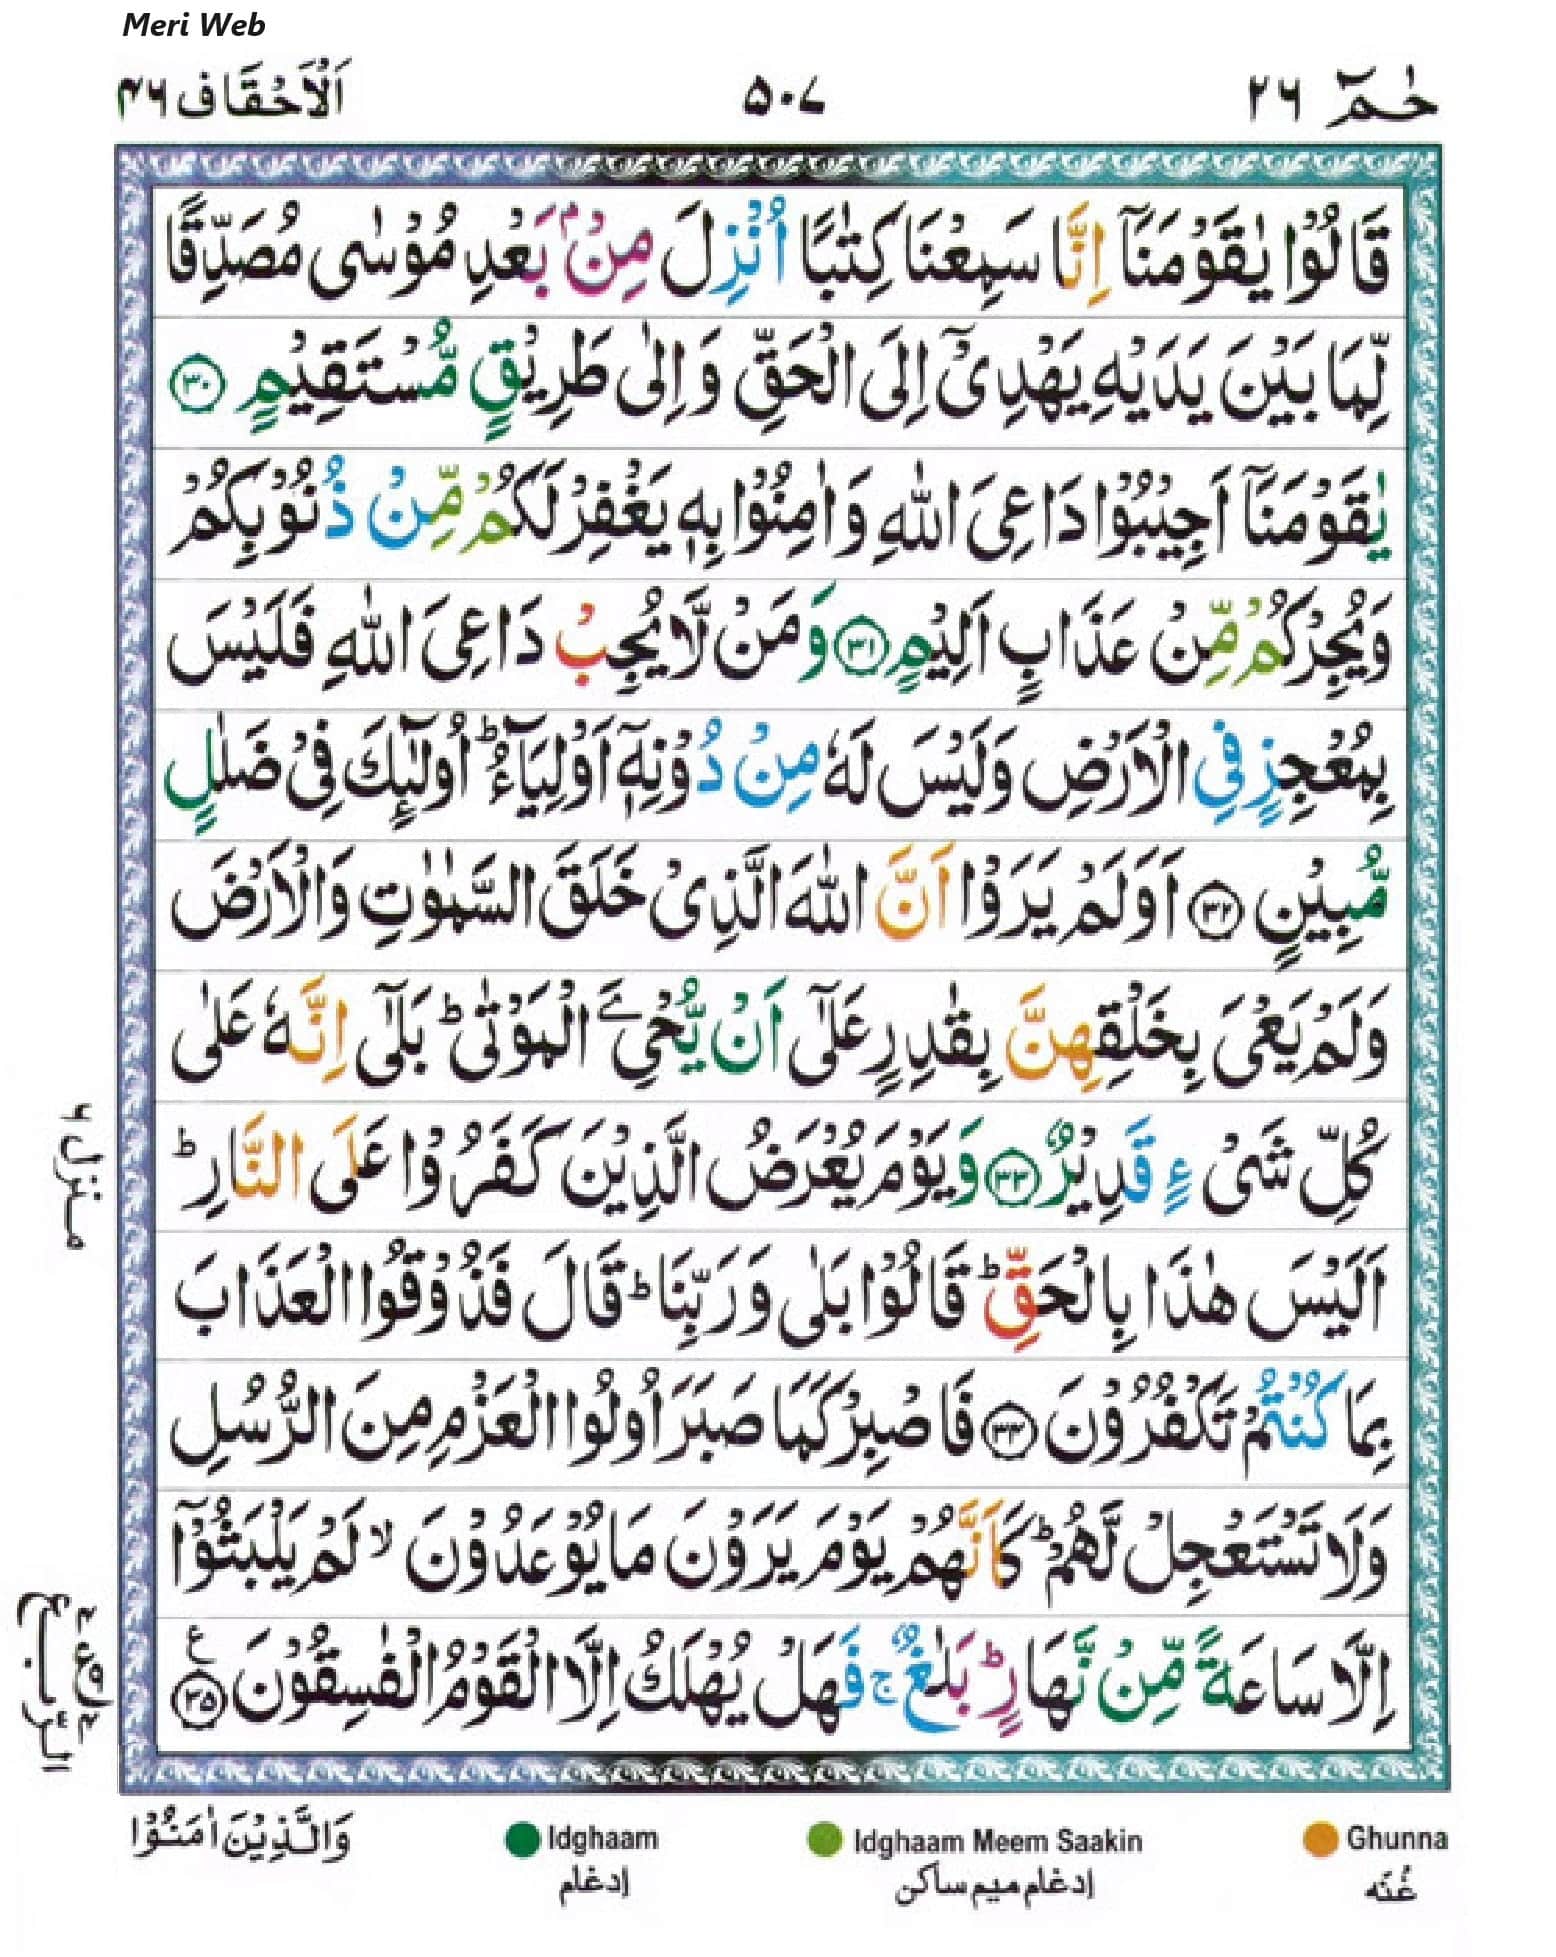 Meri Web
حٰمٓ ٢٦
٥٠٧
اَلْاَحْقَاف ٤٦
قَالُوْا يٰقَوْمَنَاۤ اِنَّا سَمِعْنَا كِتٰبًا اُنْزِلَ مِنْۢ بَعْدِ مُوْسٰى مُصَدِّقًا
لِّمَا بَيْنَ يَدَيْهِ يَهْدِىْۤ اِلَى الْحَقِّ وَاِلٰى طَرِيْقٍ مُّسْتَقِيْمٍ ﴿٣٠﴾
يٰقَوْمَنَاۤ اَجِيْبُوْا دَاعِىَ اللّٰهِ وَاٰمِنُوْا بِهٖ يَغْفِرْ لَكُمْ مِّنْ ذُنُوْبِكُمْ
وَيُجِرْكُمْ مِّنْ عَذَابٍ اَلِيْمٍ ﴿٣١﴾ وَمَنْ لَّا يُجِبْ دَاعِىَ اللّٰهِ فَلَيْسَ
بِمُعْجِزٍ فِى الْاَرْضِ وَلَيْسَ لَهٗ مِنْ دُوْنِهٖۤ اَوْلِيَآءُ ؕ اُولٰٓئِكَ فِىْ ضَلٰلٍ
مُّبِيْنٍ ﴿٣٢﴾ اَوَلَمْ يَرَوْا اَنَّ اللّٰهَ الَّذِىْ خَلَقَ السَّمٰوٰتِ وَالْاَرْضَ
وَلَمْ يَعْىَ بِخَلْقِهِنَّ بِقٰدِرٍ عَلٰۤى اَنْ يُّحْىِۦَ الْمَوْتٰى ؕ بَلٰۤى اِنَّهٗ عَلٰى
كُلِّ شَىْءٍ قَدِيْرٌ ﴿٣٣﴾ وَيَوْمَ يُعْرَضُ الَّذِيْنَ كَفَرُوْا عَلَى النَّارِ ؕ
اَلَيْسَ هٰذَا بِالْحَقِّ ؕ قَالُوْا بَلٰى وَرَبِّنَا ؕ قَالَ فَذُوْقُوا الْعَذَابَ
بِمَا كُنْتُمْ تَكْفُرُوْنَ ﴿٣٤﴾ فَاصْبِرْ كَمَا صَبَرَ اُولُوا الْعَزْمِ مِنَ الرُّسُلِ
وَلَا تَسْتَعْجِلْ لَّهُمْ ؕ كَاَنَّهُمْ يَوْمَ يَرَوْنَ مَا يُوْعَدُوْنَ ۙ لَمْ يَلْبَثُوْۤا
اِلَّا سَاعَةً مِّنْ نَّهَارٍ ؕ بَلٰغٌ ۚ فَهَلْ يُهْلَكُ اِلَّا الْقَوْمُ الْفٰسِقُوْنَ ﴿٣٥﴾ ع
منزل ٦
الربع
وَالَّذِيْنَ اٰمَنُوْا
Idghaam
إدغام
Idghaam Meem Saakin
إدغام ميم ساكن
Ghunna
غُنّه